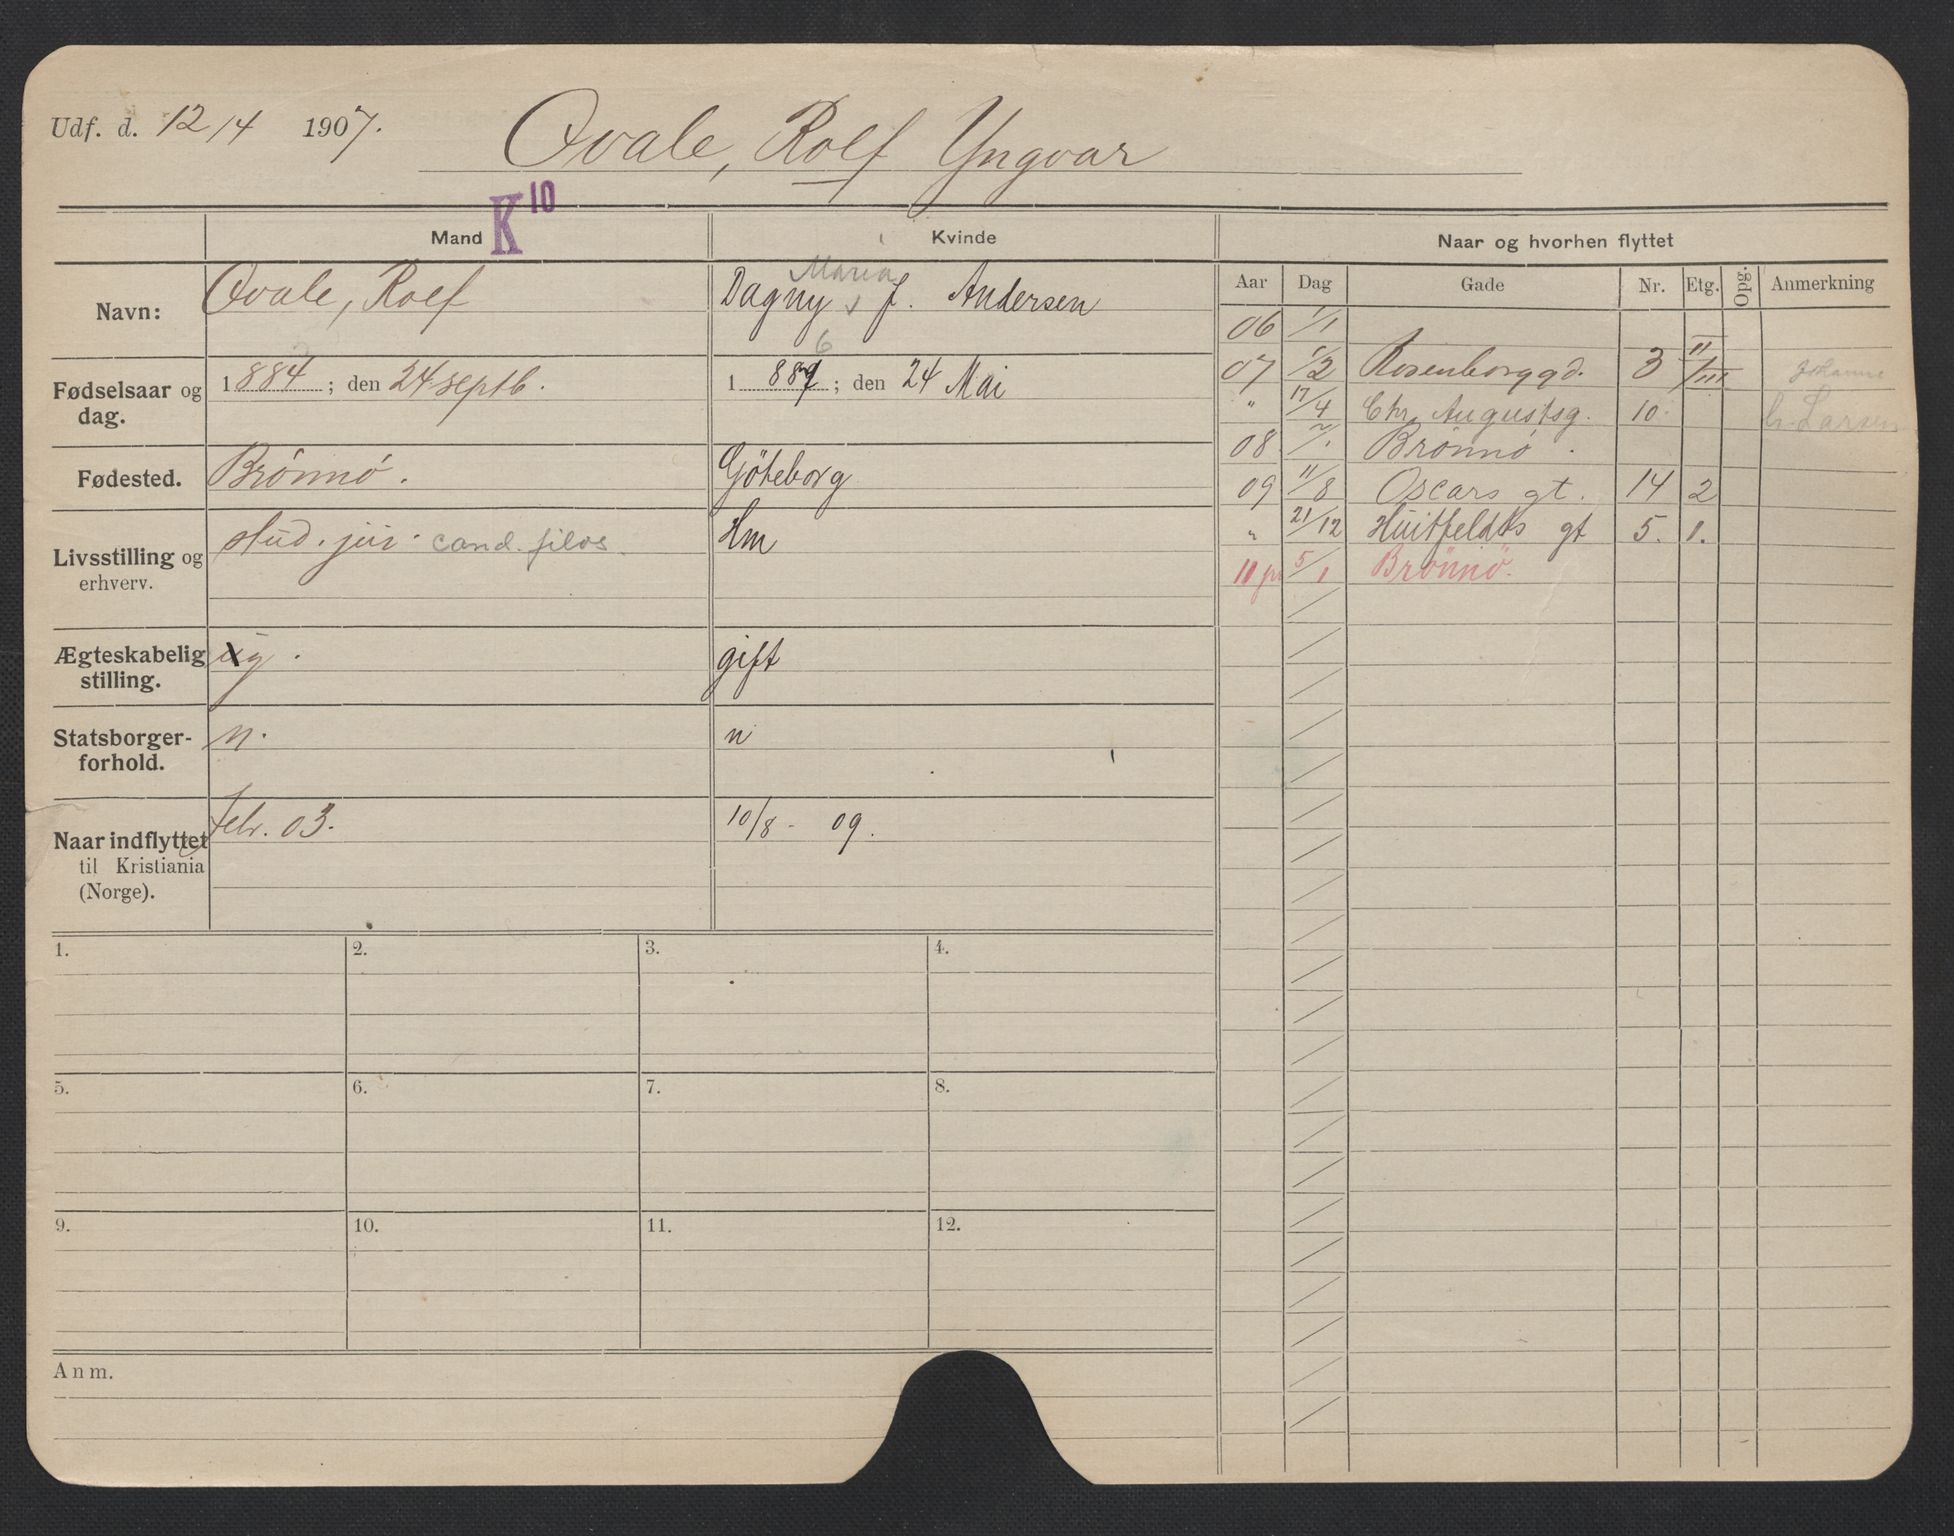 Udf. d. 12/4 1907. Qvale, Rolf Yngvar
K 10
Mand Kvinde Naar og hvorhen flyttet
Aar Dag Gade Nr. Etg. Opg. Anmerkning
Navn: Qvale, Rolf Dagny Maria J. Andersen
Fødselsaar og dag. 1884; den 24 septb. 1 88 6; den 24 Mai
Fødested. Brönnö. Göteborg
Livsstilling og erhverv. stud. jur. cand. filos. Hm
Ægteskabelig stilling. ug. gift
Statsborgerforhold. n. n
Naar indflyttet til Kristiania (Norge). Febr. 03. 10/8 - 09.
06 1/1
07 1/2 Rosenborggd. 3 II/III Johanne
" 17/4 Chr. Augustsg. 10. Larsen
08 2/1 Brönnö.
09 11/8 Oscars gt. 14 2
" 21/12 Huitfeldts gt 5. 1.
10 5/1 Brönnö.
1. 2. 3. 4.
5. 6. 7. 8.
9. 10. 11. 12.
Anm.